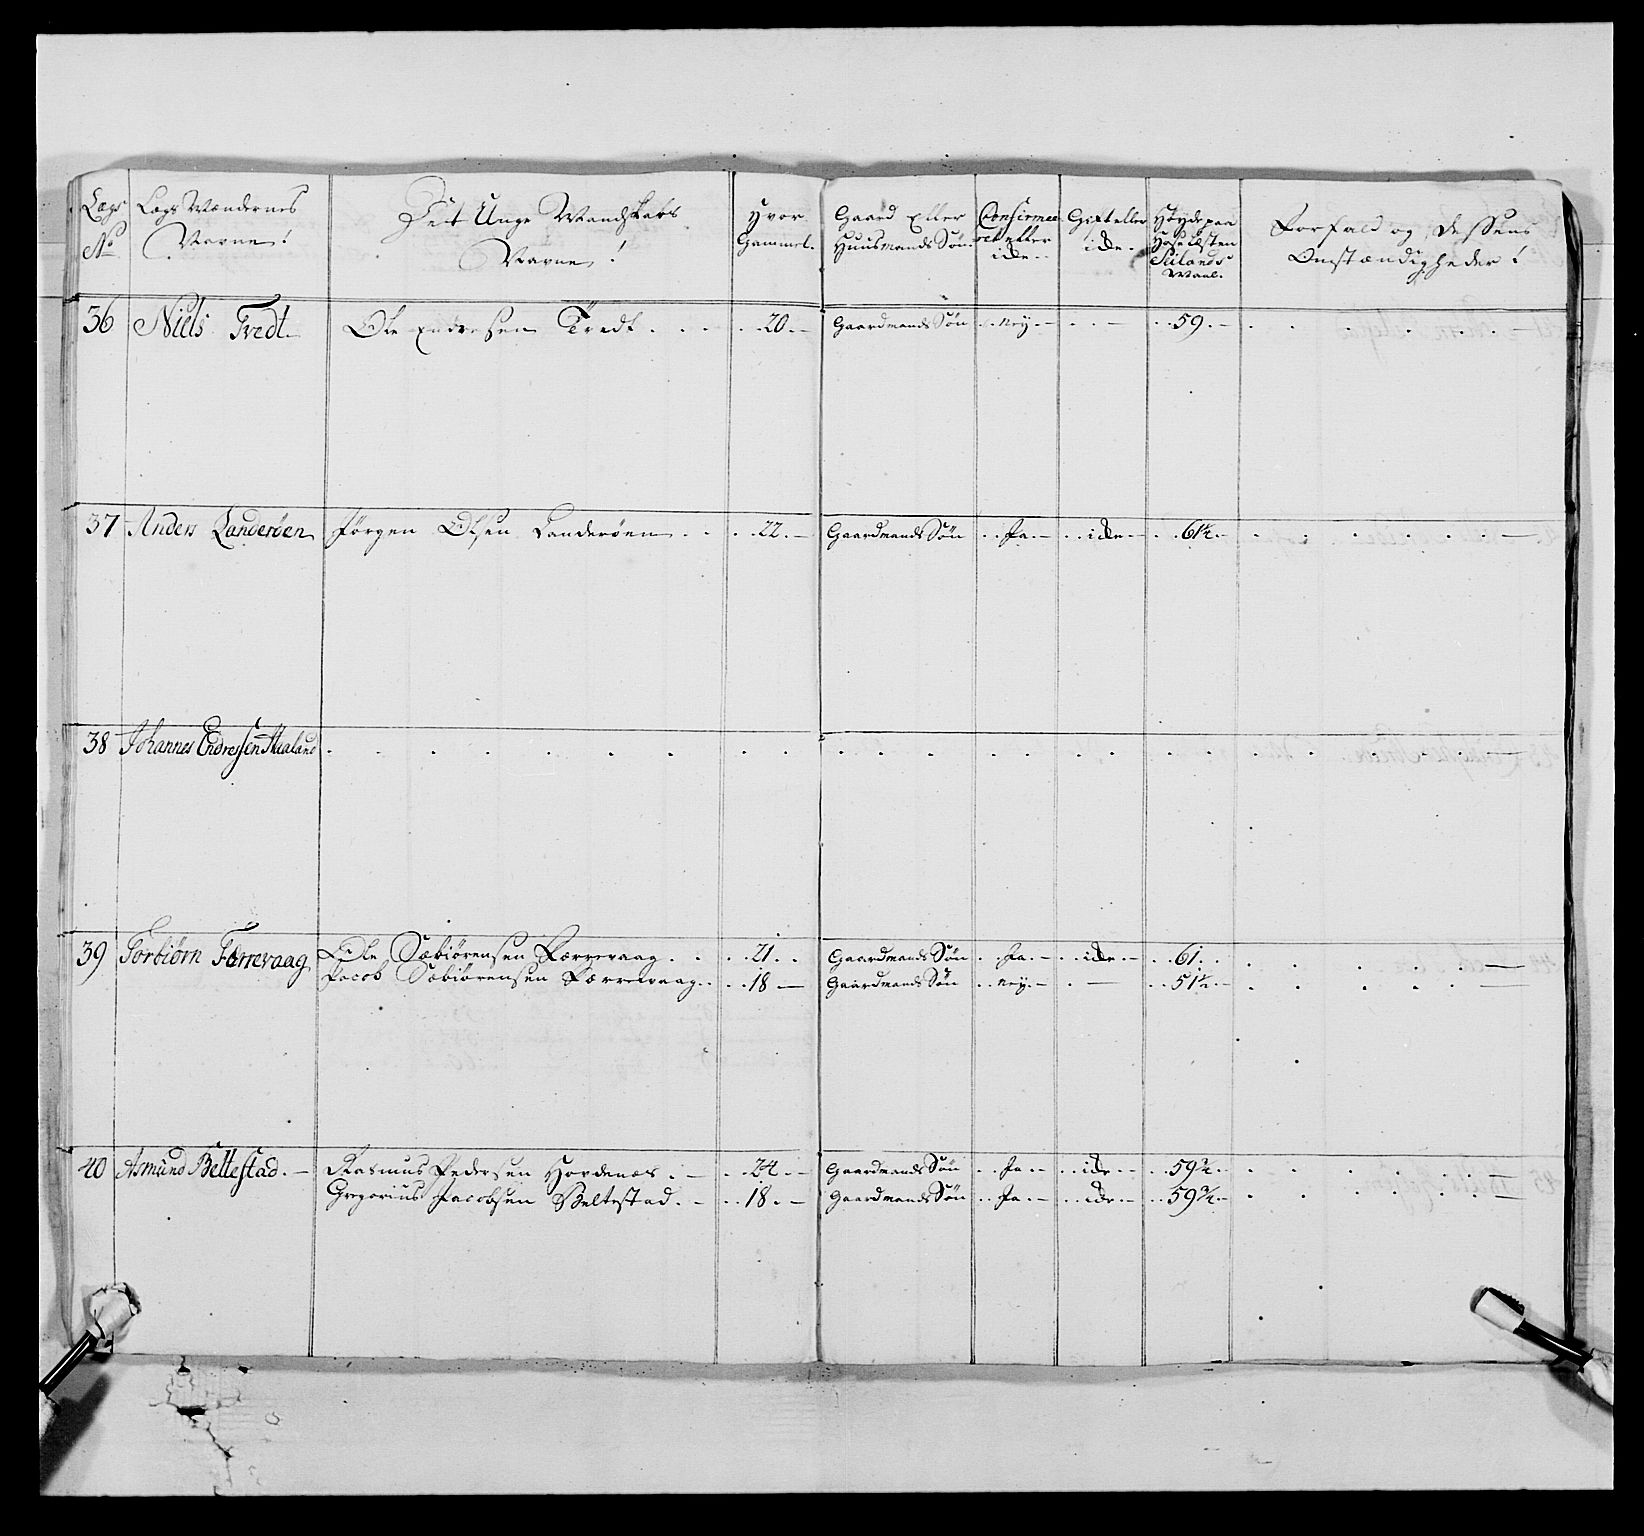 Lægs No
Lægs Mændernes Navne!
Det Unge Mandskabs Navne!
Hvor Gammel.
Gaard Eller Huusmands Søn
Confirmeret eller icke
Gift eller icke.
Høyde paa Hose Læsten Siilands Maal.
Forfald og dessens Omstændigheder!
36 Niels Tredt Ole Endresen Tredt 20. Gaardmands Søn ney 59.
37 Anders Landerøen Jørgen Olsen Landerøen 22. Gaardmands Søn Ja icke 61½
38 Johannes Endressen
39 Torbiørn Færrevaag Ole Sæbiørensen Færrevaag 21. Gaardmands Søn Ja icke 61.
Jacob Sæbiørensen Færrevaag 18 Gaardmands Søn ney 51½
40 Asmund Beltestad. Rasmus Pedersen Hovdenæs 24. Gaardmands Søn Ja icke 59¾
Gregorius Jacobsen Beltestad 18. Gaardmands Søn Ja icke 59¾